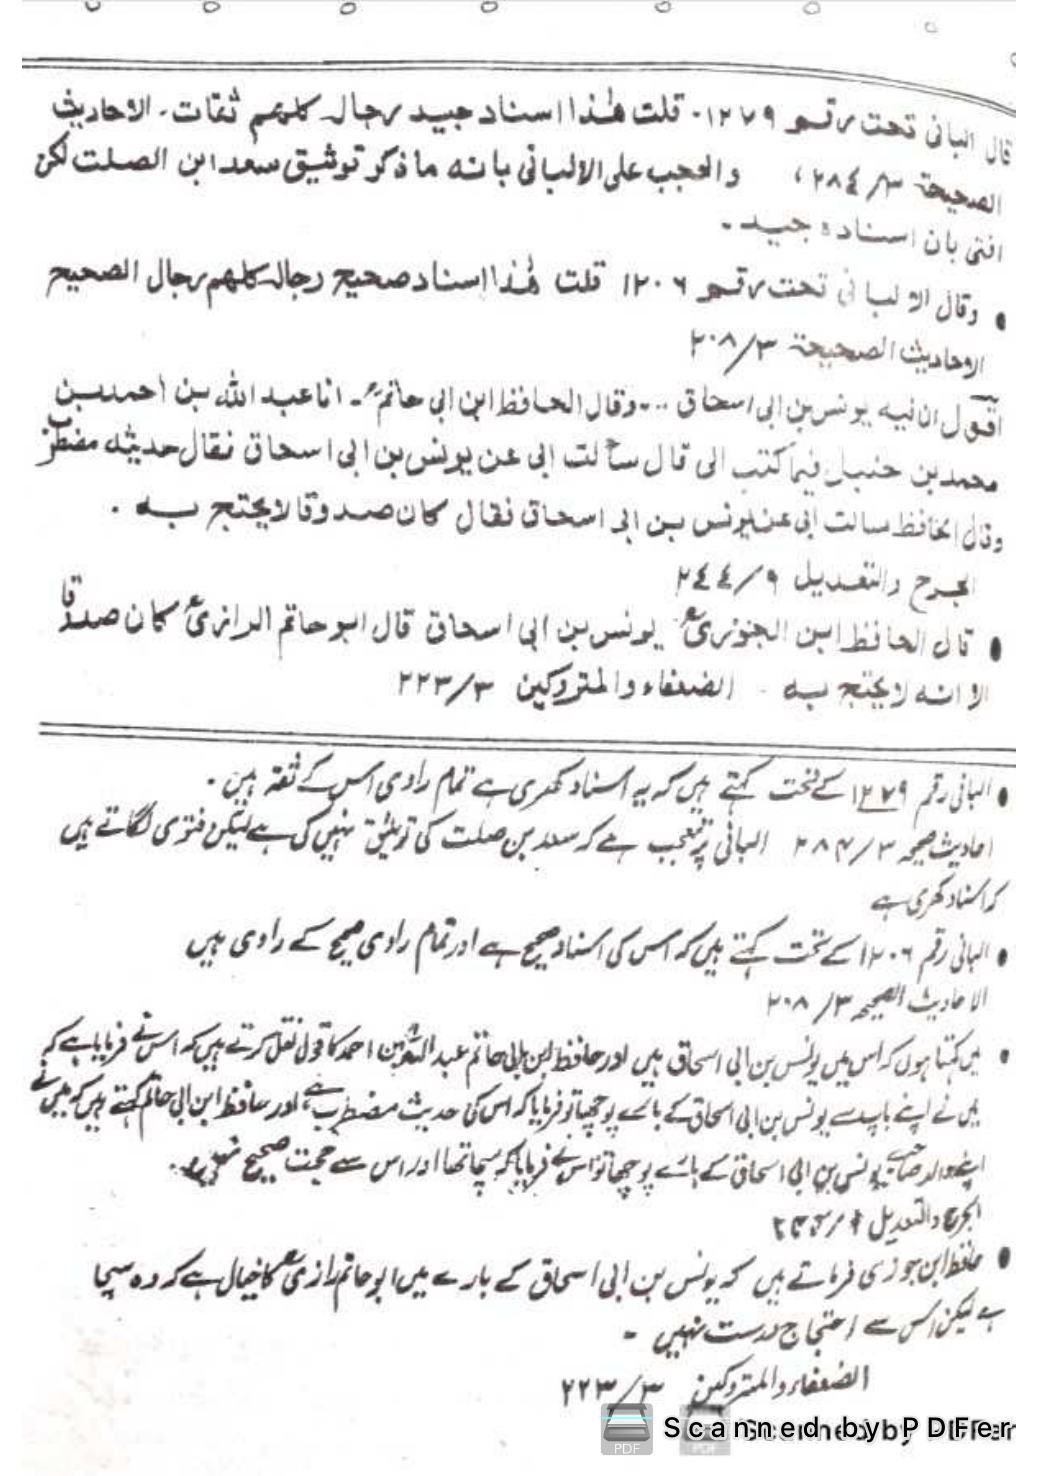 قال البانی تحت رقم ۱۲۷۹۔ قلت ھٰذا اسناد جید رجالہ کلھم ثقات۔ الاحادیث
الصحیحۃ ۳/۲۸٤، والعجب علی الالبانی بانہ ما ذکر توثیق سعد ابن الصلت لکن
افتی بان اسنادہ جید۔
• وقال الالبانی تحت رقم ۱۲۰٦ قلت ھٰذا اسناد صحیح رجالہ کلھم رجال الصحیح
الاحادیث الصحیحۃ ۳/۲۰۸
اقول ان فیہ یونس بن ابی اسحاق ... وقال الحافظ ابن ابی حاتمؒ۔ انا عبد اللہ بن احمد بن
محمد بن حنبل فیما کتب الی قال سألت ابی عن یونس بن ابی اسحاق فقال حدیثہ مضطرب
وقال الحافظ سالت ابی عن یونس بن ابی اسحاق فقال کان صدوقا لا یحتج بہ .
الجرح والتعدیل ۹/۲٤٤
• قال الحافظ ابن الجوزیؒ یونس بن ابی اسحاق قال ابو حاتم الرازیؒ کان صدوقا
الا انہ لا یحتج بہ . الضعفاء والمتروکین ۳/۲۲۳
• البانی رقم ۱۲۷۹ کے تحت کہتے ہیں کہ یہ اسناد کھری ہے تمام راوی اس کے ثقہ ہیں۔
احادیث صحیحہ ۳/۲۸۴ البانی پر تعجب ہے کہ سعد بن صلت کی توثیق نہیں کی ہے لیکن فتوی لگاتے ہیں
کہ اسناد کھری ہے
• البانی رقم ۱۲۰٦ کے تحت کہتے ہیں کہ اس کی اسناد صحیح ہے اور تمام راوی صحیح کے راوی ہیں
الاحادیث الصحیحہ ۳/۲۰۸
• میں کہتا ہوں کہ اس میں یونس بن ابی اسحاق ہیں اور حافظ ابن ابی حاتم عبد اللہ بن احمد کا قول نقل کرتے ہیں کہ اس نے فرمایا ہے کہ
میں نے اپنے باپ سے یونس بن ابی اسحاق کے بارے پوچھا تو فرمایا کہ اس کی حدیث مضطرب ہے، اور حافظ ابن ابی حاتم کہتے ہیں کہ میں نے
اپنے والد صاحب سے یونس بن ابی اسحاق کے بارے پوچھا تو اس نے فرمایا کہ سچا تھا اور اس سے حجت صحیح نہیں ہے۔
الجرح والتعدیل
• حافظ ابن جوزی فرماتے ہیں کہ یونس بن ابی اسحاق کے بارے میں ابو حاتم رازیؒ کا خیال ہے کہ وہ سچا
ہے لیکن اس سے احتجاج درست نہیں ۔
الضعفاء والمتروکین ۳/۲۲۳
Scanned by PDFer
Scanned by PDFer